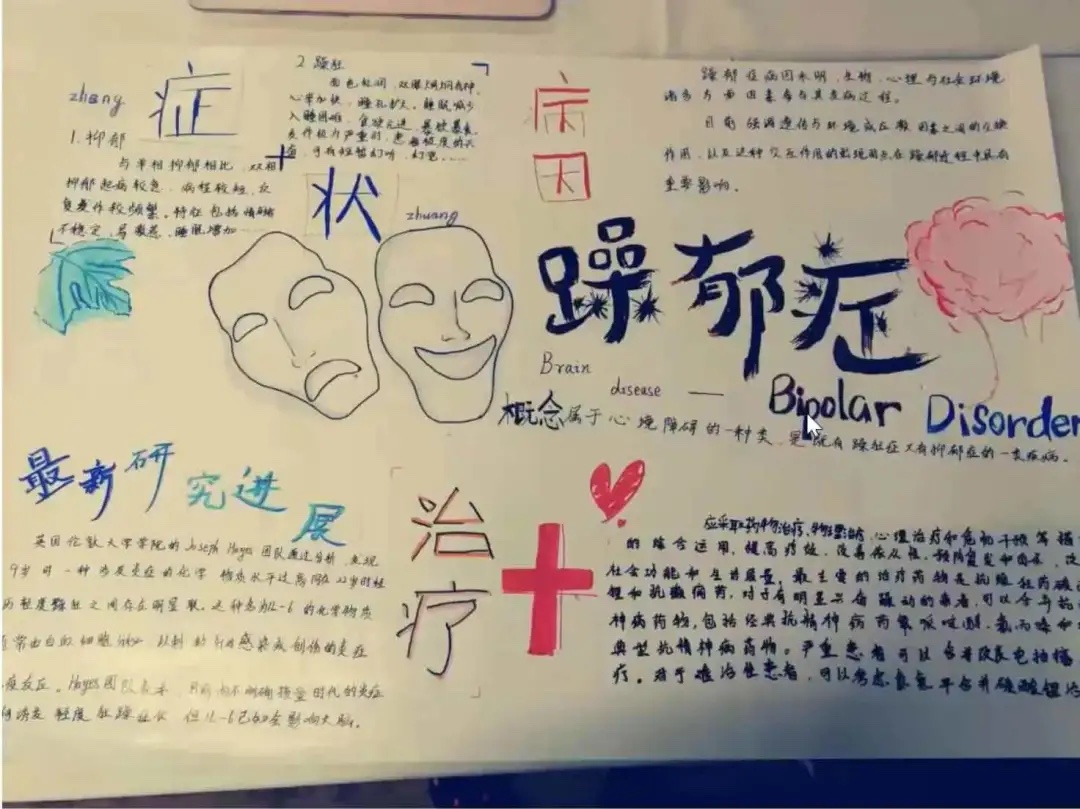 zheng
症
1. 抑郁
与单相抑郁相比，双相
抑郁起病较急，病程较短，反
复发作较频繁。特征包括情绪
不稳定、易激惹、睡眠增加……
2 躁狂
面色红润，双眼炯炯有神，
心率加快，瞳孔扩大，睡眠减少
入睡困难，食欲亢进，暴饮暴食
发作极为严重时，患者极度的兴
奋，可有短暂幻听，幻觉……
状
zhuang
病
因
躁郁症病因未明，生物、心理与社会环境
诸多方面因素参与其发病过程。
目前强调遗传与环境或应激因素之间的交互
作用，以及这种交互作用的出现时点在躁郁过程中具有
重要影响。
躁郁症
Brain
disease —
Bipolar Disorder
概念属于心境障碍的一种类，是既有躁狂症又有抑郁症的一类疾病。
最新研究进展
英国伦敦大学学院的Joseph Hayes团队通过分析，发现
9岁时一种涉及炎症的化学物质水平过高同在22岁时经
历轻度躁狂之间存在明显联。这种名为IL-6的化学物质
常由白血细胞 以刺 感染或创伤的炎症
疫反应。Hayes团队表示，目前尚不明确 时代的炎症
诱发轻度狂躁症状，但IL-6已知会影响大脑。
治
疗
应采取药物治疗、物理治疗、心理治疗和危机干预等措
的综合运用，提高疗效、改善依从性、预防复发和自杀，改
社会功能和生活质量。最主要的治疗药物是抗躁狂药碳
锂和抗癫痫药，对于有明显兴奋躁动的患者，可以合并抗
神病药物，包括经典抗精神病药氟哌啶醇、氯丙嗪和
典型抗精神病药物。严重患者可以合并改良电抽搐
疗。对于难治性患者，可以考虑氯氮平合并碳酸锂治